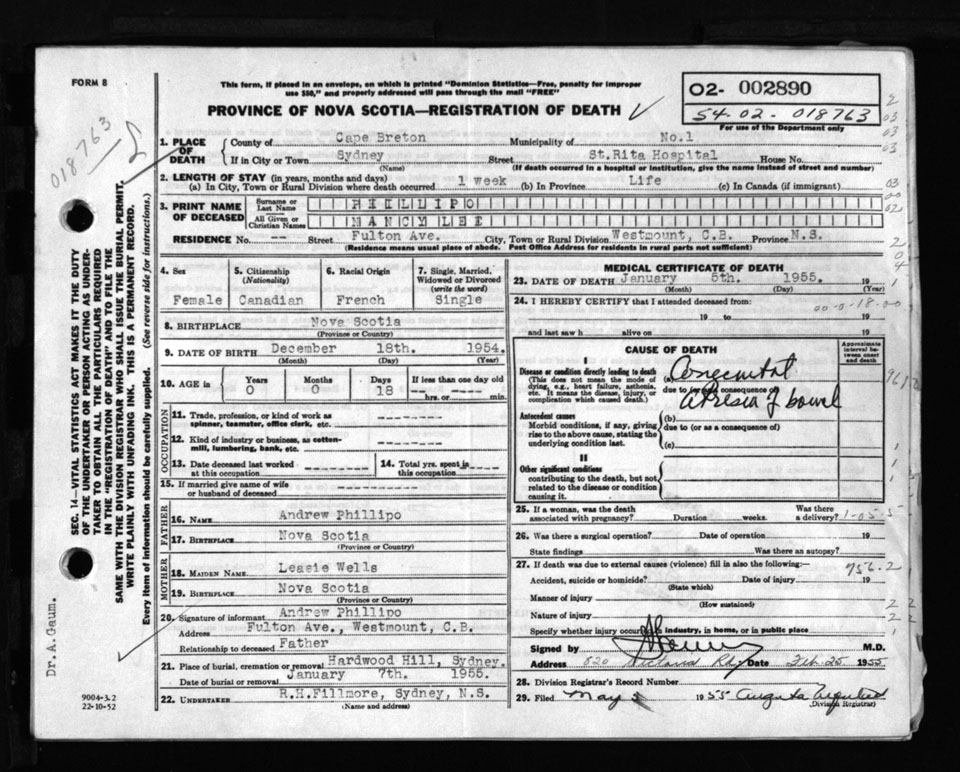 FORM 8
This form, if placed in an envelope, on which is printed "Dominion Statistics—Free, penalty for improper
use $50," and properly addressed will pass through the mail "FREE"
PROVINCE OF NOVA SCOTIA—REGISTRATION OF DEATH
02- 002890
54-02-018763
For use of the Department only
018763
1. PLACE OF DEATH
County of Cape Breton Municipality of No.1
If in City or Town Sydney Street St.Rita Hospital House No.
(Name) (If death occurred in a hospital or institution, give the name instead of street and number)
2. LENGTH OF STAY (in years, months and days)
(a) In City, Town or Rural Division where death occurred 1 week (b) In Province Life (c) In Canada (if immigrant)
3. PRINT NAME OF DECEASED
Surname or Last Name PHILLIPO
All Given or Christian Names NANCY LEE
RESIDENCE No. -- Street Fulton Ave. City, Town or Rural Division Westmount, C.B. Province N.S.
(Residence means usual place of abode. Post Office Address for residents in rural parts not sufficient)
4. Sex Female
5. Citizenship (Nationality) Canadian
6. Racial Origin French
7. Single, Married, Widowed or Divorced (write the word) Single
8. BIRTHPLACE Nova Scotia
(Province or Country)
9. DATE OF BIRTH December 18th. 1954.
(Month) (Day) (Year)
10. AGE in Years 0 Months 0 Days 18 If less than one day old hrs. or min.
OCCUPATION
11. Trade, profession, or kind of work as
spinner, teamster, office clerk, etc.
12. Kind of industry or business, as cotton-
mill, lumbering, bank, etc.
13. Date deceased last worked
at this occupation
14. Total yrs. spent in
this occupation
15. If married give name of wife
or husband of deceased
FATHER
16. NAME Andrew Phillipo
17. BIRTHPLACE Nova Scotia
(Province or Country)
MOTHER
18. MAIDEN NAME Leasie Wells
19. BIRTHPLACE Nova Scotia
(Province or Country)
20. Signature of informant Andrew Phillipo
Address Fulton Ave., Westmount, C.B.
Relationship to deceased Father
21. Place of burial, cremation or removal Hardwood Hill, Sydney.
Date of burial or removal January 7th. 1955.
22. UNDERTAKER R.H.Fillmore, Sydney, N.S.
(Name and address)
MEDICAL CERTIFICATE OF DEATH
23. DATE OF DEATH January 5th. 1955. 19
(Month) (Day) (Year)
24. I HEREBY CERTIFY that I attended deceased from:
00-0-18-00
19 to 19
and last saw h alive on 19
CAUSE OF DEATH
Approximate interval between onset and death
I
Disease or condition directly leading to death
(This does not mean the mode of
dying, e.g., heart failure, asthenia,
etc. It means the disease, injury, or
complication which caused death.)
(a) Congenital
due to (or as a consequence of)
atresia of bowel
Antecedent causes
Morbid conditions, if any, giving
rise to the above cause, stating the
underlying condition last.
(b)
due to (or as a consequence of)
(c)
II
Other significant conditions
contributing to the death, but not
related to the disease or condition
causing it.
25. If a woman, was the death
associated with pregnancy? Duration weeks. Was there
a delivery? 1-05-5
26. Was there a surgical operation? Date of operation 19
State findings Was there an autopsy?
27. If death was due to external causes (violence) fill in also the following:—
756.2
Accident, suicide or homicide? Date of injury 19
(State which)
Manner of injury
(How sustained)
Nature of injury
Specify whether injury occurred in industry, in home, or in public place
Signed by M.D.
Address Date Feb. 25 1955
28. Division Registrar's Record Number
29. Filed May 5 1955
(Division Registrar)
SEC. 14—VITAL STATISTICS ACT MAKES IT THE DUTY
OF THE UNDERTAKER OR PERSON ACTING AS UNDER-
TAKER TO OBTAIN ALL THE PARTICULARS REQUIRED
IN THE "REGISTRATION OF DEATH" AND TO FILE THE
SAME WITH THE DIVISION REGISTRAR WHO SHALL ISSUE THE BURIAL PERMIT.
WRITE PLAINLY WITH UNFADING INK. THIS IS A PERMANENT RECORD.
Every item of information should be carefully supplied. (See reverse side for instructions.)
Dr.A.Gaum.
9004-3.2
22-10-52